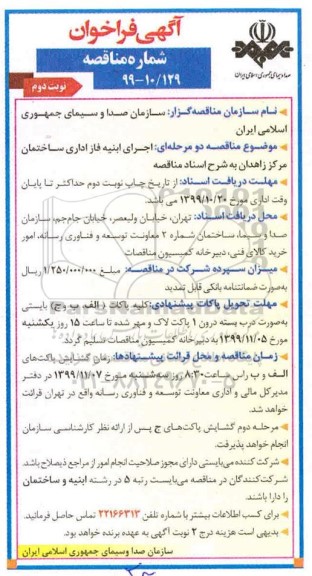 آگهی فراخوان
شماره مناقصه
۹۹-۱۰/۱۲۹
نوبت دوم
صدا و سیمای جمهوری اسلامی ایران
نـام سـازمان مناقصه‌گـزار: سـازمان صـدا و سـیمای جمهـوری
اسلامی ایران
موضـوع مناقصـه دو مرحله‌ای: اجـرای ابنیه فاز اداری سـاختمان
مرکز زاهدان به شرح اسناد مناقصه
مهلـت دریـافت اسـناد: از تاریخ چـاپ نوبـت دوم حداکثـر تـا پایـان
وقت اداری مورخ ۱۳۹۹/۱۰/۲۰ می باشد.
محل دریافت اسناد: تهران، خیابـان ولیعصر، خیابان جام‌جم، سازمان
صدا و سـیما، ساختمان شماره ۲ معاونت توسـعه و فنـاوری رسـانه، امور
خرید کالای فنی، دبیرخانه کمیسیون مناقصات
میـزان سـپرده شـرکت در مناقصـه: مبلـغ ۱/۲۵۰/۰۰۰/۰۰۰ ریـال
به‌صورت ضمانتنامه بانکی قابل تمدید
مهلت تحویل پاکات پیشنهادی: کلیه پاکات ( الف، ب و ج) بایستی
به‌صورت درب بسته درون ۱ پاکت لاک و مهر شده تا ساعت ۱۵ روز یکشنبه
مورخ ۱۳۹۹/۱۱/۰۵ به دبیرخانه کمیسیون مناقصات تسلیم گردد.
زمـان مناقصه و محل قرائت پیشـنهادها: زمان گشـایش پاکت‌های
الـف و ب راس سـاعت ۸:۳۰ روز سه شنبه مـورخ ۱۳۹۹/۱۱/۰۷ در دفتـر
مدیرکل مالی و اداری معاونت توسـعه و فناوری رسـانه واقع در تهران قرائت
خواهد شد.
مرحلـه دوم گشـایش پاکت‌هـای ج پـس از ارائه نظر کارشناسـی سـازمان
انجام خواهد پذیرفت.
شرکت کننده می‌بایستی دارای مجوز صلاحیت انجام امور از مراجع ذیصلاح باشد.
شـرکت‌کنندگان در مناقصه می‌بایسـت رتبه ۵ در رشـته ابنیه و ساختمان
را دارا باشند.
برای کسب اطلاعات بیشتر با شماره تلفن ۲۲۱۶۶۳۱۳ تماس حاصل فرمائید.
بدیهی است هزینه درج ۲ نوبت آگهی به عهده برنده خواهد بود.
سازمان صدا وسیمای جمهوری اسلامی ایران